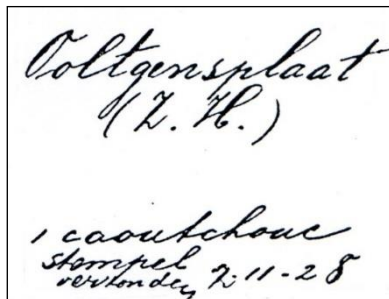 Ooltgensplaat
(Z. H.)
1 caoutchouc
stempel
verzonden 2-11-28